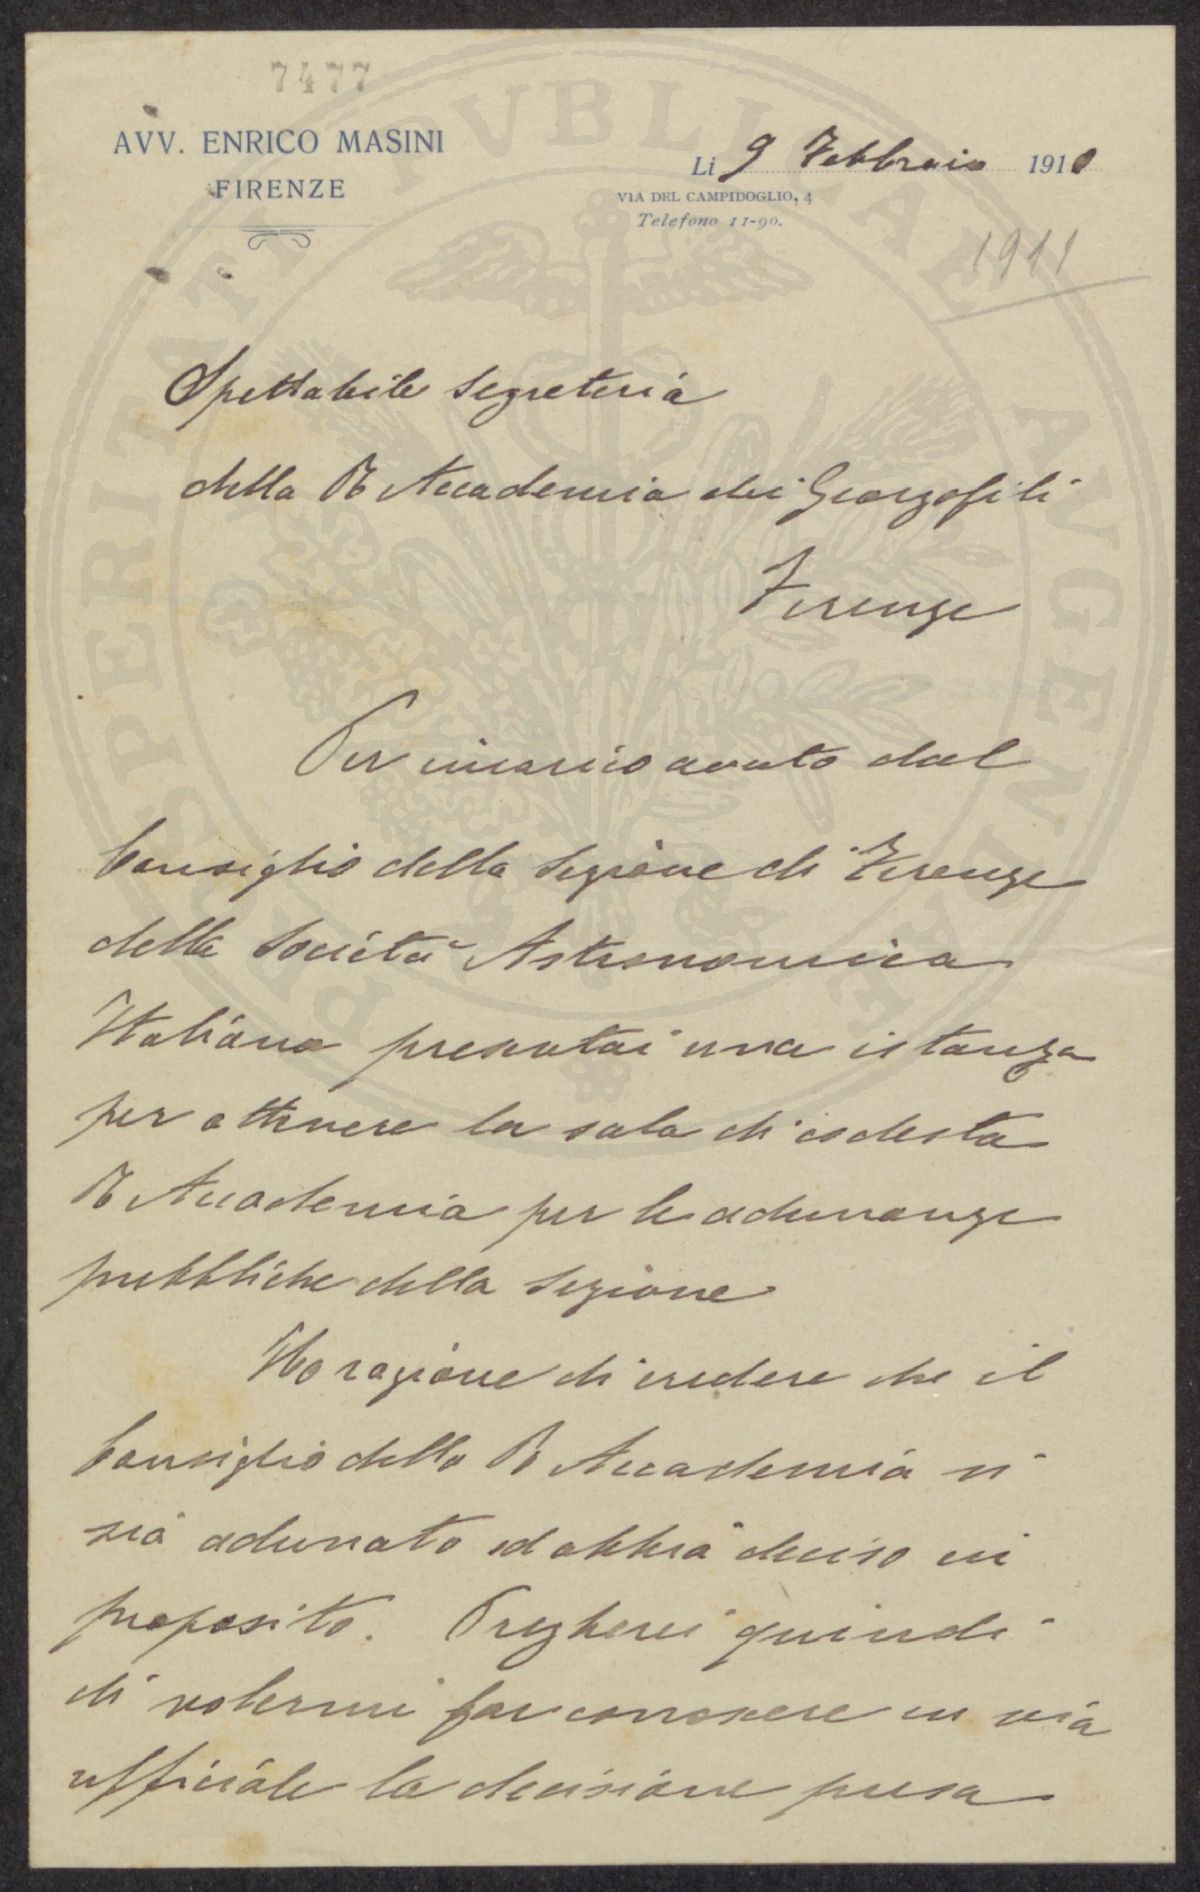 7477
AVV. ENRICO MASINI
FIRENZE
Li 9 Febbraio 1910
VIA DEL CAMPIDOGLIO, 4
Telefono 11-90.
1911
Spettabile Segreteria
della R Accademia dei Georgofili
Firenze
Per incarico avuto dal
Consiglio della Sezione di Firenze
della Società Astronomica
Italiana presentai una istanza
per ottenere la sala di codesta
R Accademia per le adunanze
pubbliche della Sezione
Ho ragione di credere che il
Consiglio della R Accademia si
sia adunato ed abbia deciso in
proposito. Pregherei quindi
di volermi far conoscere in via
ufficiale la decisione presa
PROSPERITATI PVBLICAE AVGENDAE